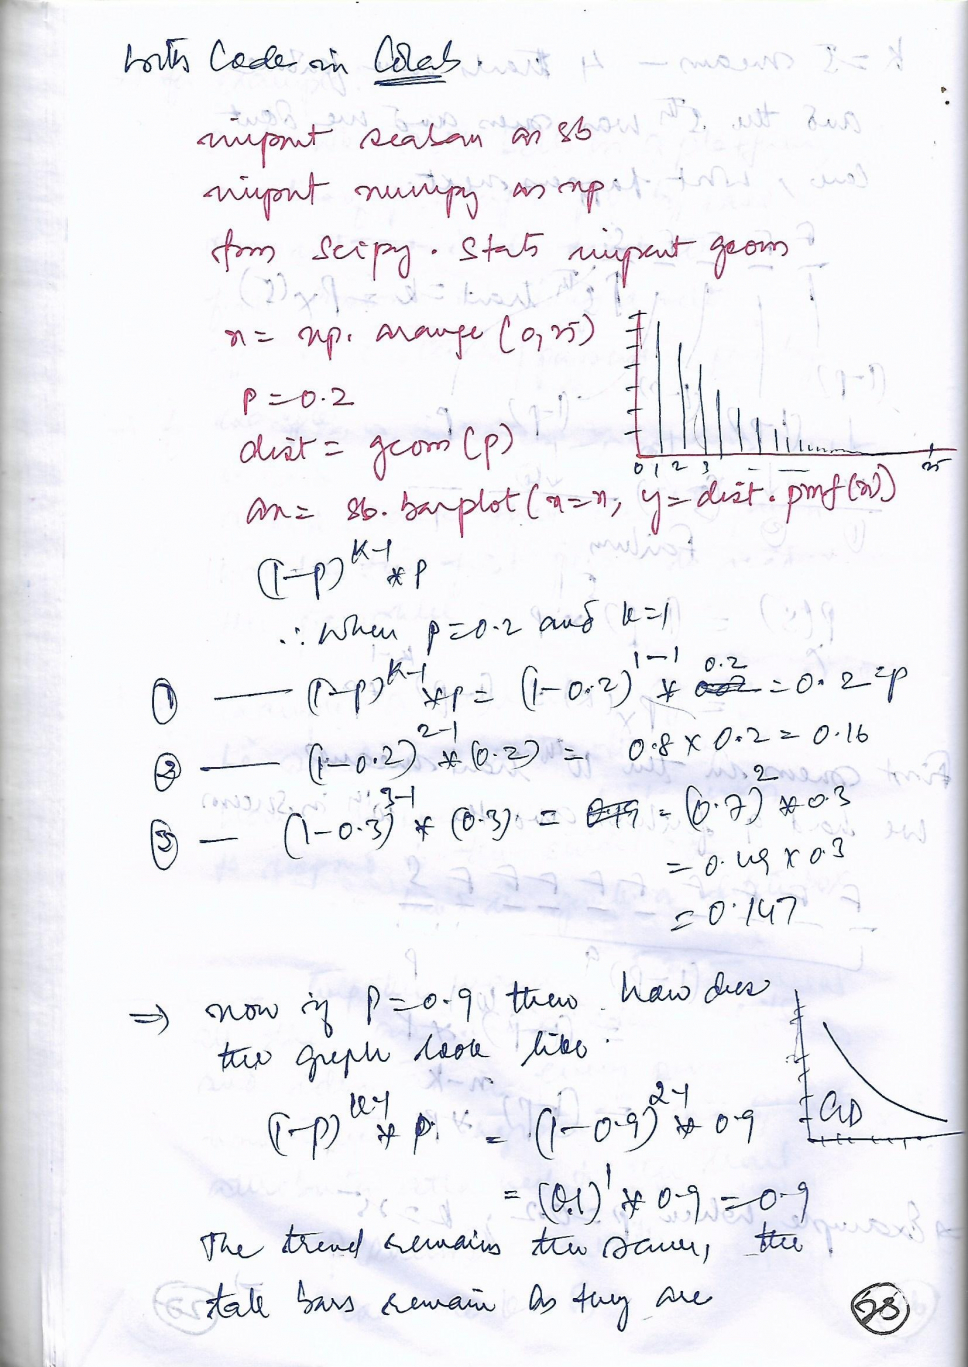 with Code in Colab
import seaban as sb
import numpy as np
from scipy . stats import geom
n = np. arange (0, 25)
p = 0.2
dist = geom (p)
0 1 2 3 25
an = sb. barplot (n = n, y = dist . pmf (n))
(1-p)^{K-1} * p
∴ when p = 0.2 and k = 1
① — (1-p)^{K-1} * p = (1-0.2)^{1-1} * 0.2 = 0.2 = p
② — (1-0.2)^{2-1} * (0.2) = 0.8 x 0.2 = 0.16
③ — (1-0.3)^{3-1} * (0.3) = = (0.7)^2 * 0.3
= 0.49 x 0.3
= 0.147
⇒ now if P = 0.9 then how does
the graph look like.
(1-p)^{K-1} * p = (1-0.9)^{2-1} * 0.9
GD
= (0.1)^1 * 0.9 = 0.9
The trend remains the same, the
tall bars remain as they are
28